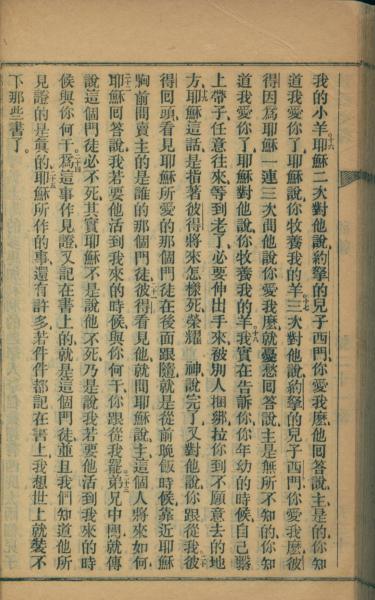 我的小羊耶穌二次對他說約拏的兒子西門你愛我麼他回答說主是的你知
道我愛你了耶穌說你牧養我的羊三次對他說約拏的兒子西門你愛我麼彼
得因為耶穌一連三次問他說你愛我麼就憂愁回答說主是無所不知的你知
道我愛你了耶穌對他說你牧養我的羊我實在告訴你你年幼的時候自己繫
上帶子任意往來等到老了必要伸出手來被別人捆綁拉你到不願意去的地
方耶穌這話是指著彼得將來怎樣死榮耀 神說完了又對他說你跟從我彼
得回頭看見耶穌所愛的那個門徒在後面跟隨就是從前晚飯時候靠近耶穌
胸前問賣主的是誰的那個門徒彼得看見他就問耶穌說主這個人將來如何
耶穌回答說我若要他活到我來的時候與你何干你跟從我罷弟兄中間就傳
說這個門徒必不死其實耶穌不是說他不死乃是說我若要他活到我來的時
候與你何干為這事作見證又記在書上的就是這個門徒並且我們知道他所
見證的是真的耶穌所作的事還有許多若件件都記在書上我想世上就裝不
下那些書了